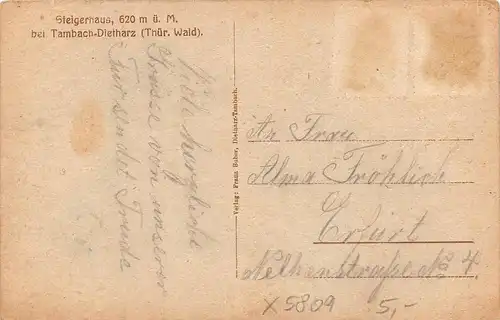 Steigerhaus, 620 m ü. M.
bei Tambach-Dietharz (Thür. Wald).
Viele herzliche
Grüsse von unserer
Tur sendet Trude
Verlag: Franz Huber, Dietharz-Tambach.
An Frau
Alma Fröhlich
Erfurt
Nelkenstraße No 4.
X 5809 5,-